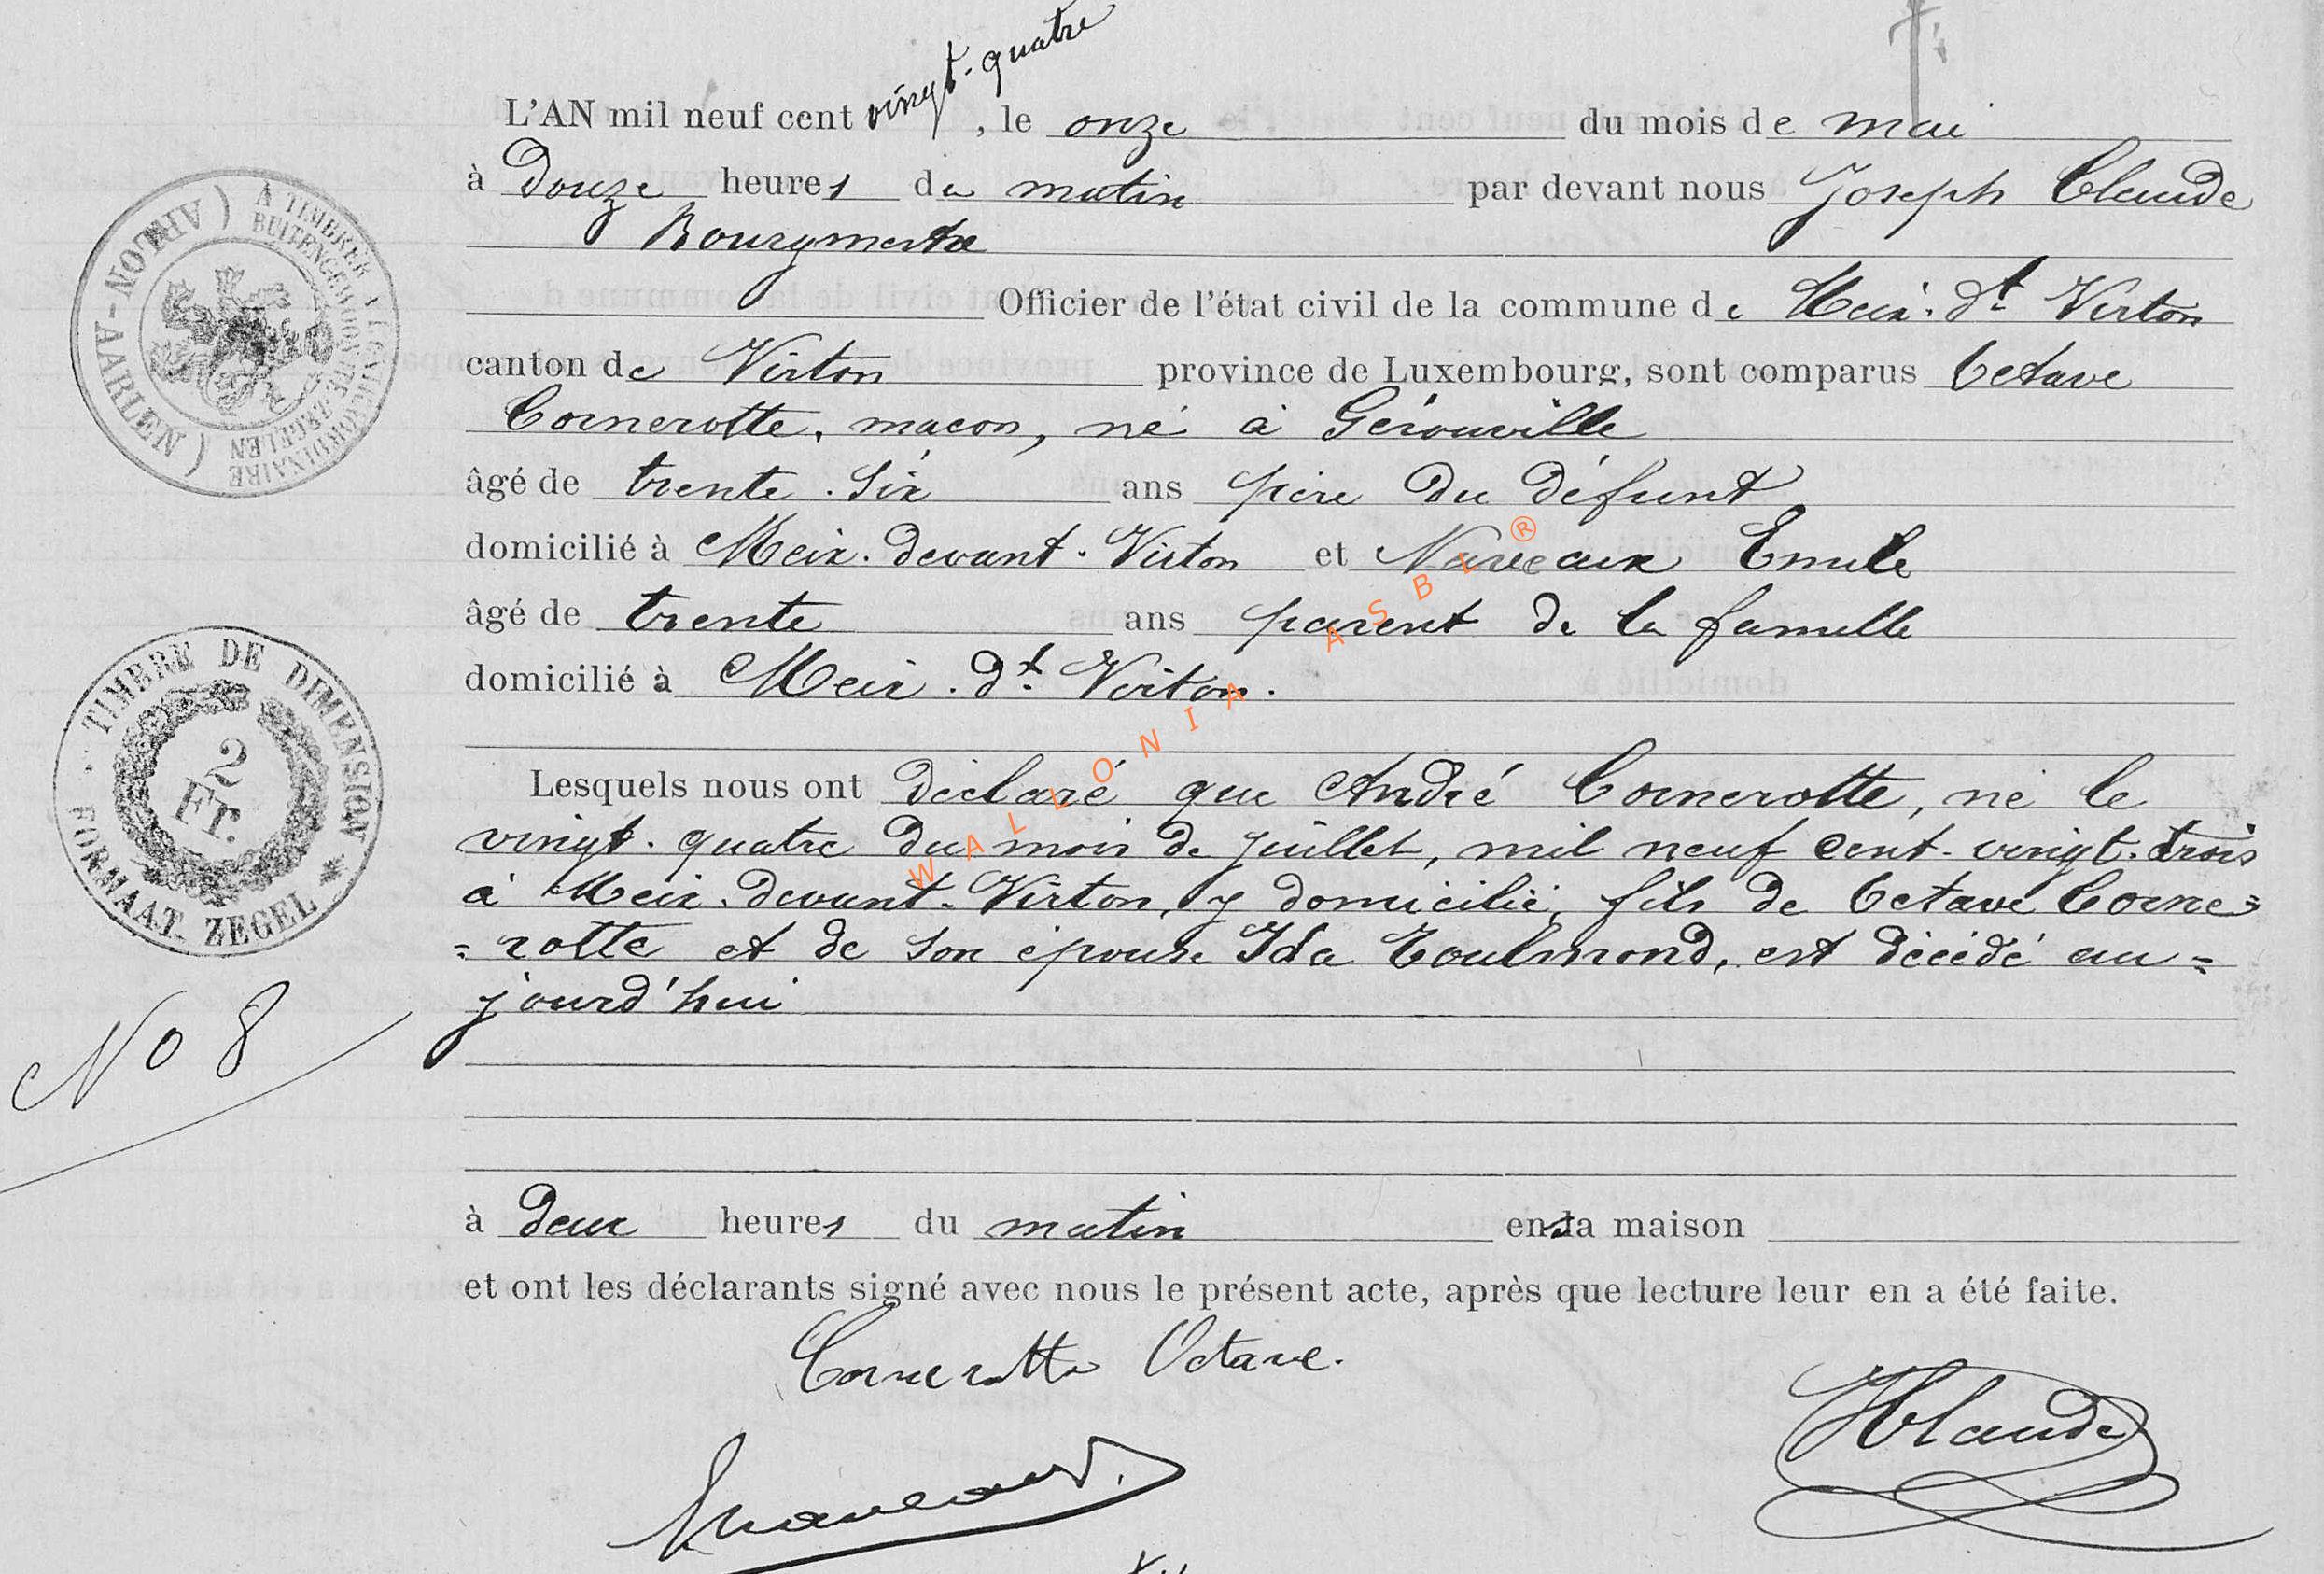 vingt-quatre
L'AN mil neuf cent , le onze du mois de mai
à Douze heures du matin par devant nous Joseph Claude
Bourgmestre
Officier de l'état civil de la commune de Meix-dt Virton
canton de Virton province de Luxembourg, sont comparus Octave
Cornerotte, maçon, né à Gérouville
âgé de trente-six ans père du défunt
domicilié à Meix-devant-Virton et Naveaux Emile
âgé de trente ans parent de la famille
domicilié à Meix-dt Virton.
Lesquels nous ont déclaré que André Cornerotte, né le
vingt-quatre du mois de juillet, mil neuf cent-vingt-trois
à Meix-devant-Virton, y domicilié, fils de Octave Corne=
=rotte et de son épouse Ida Toulmond, est décédé au=
jourd'hui
à deux heures du matin en sa maison
et ont les déclarants signé avec nous le présent acte, après que lecture leur en a été faite.
Cornerotte Octave.
Claude
No 8
A TIMBRER A L'EXTRAORDINAIRE
BUITENGEWOON TE ZEGELEN
ARLON - AARLEN
TIMBRE DE DIMENSION
2
Fr.
FORMAAT ZEGEL
WALLONIA ASBL ®